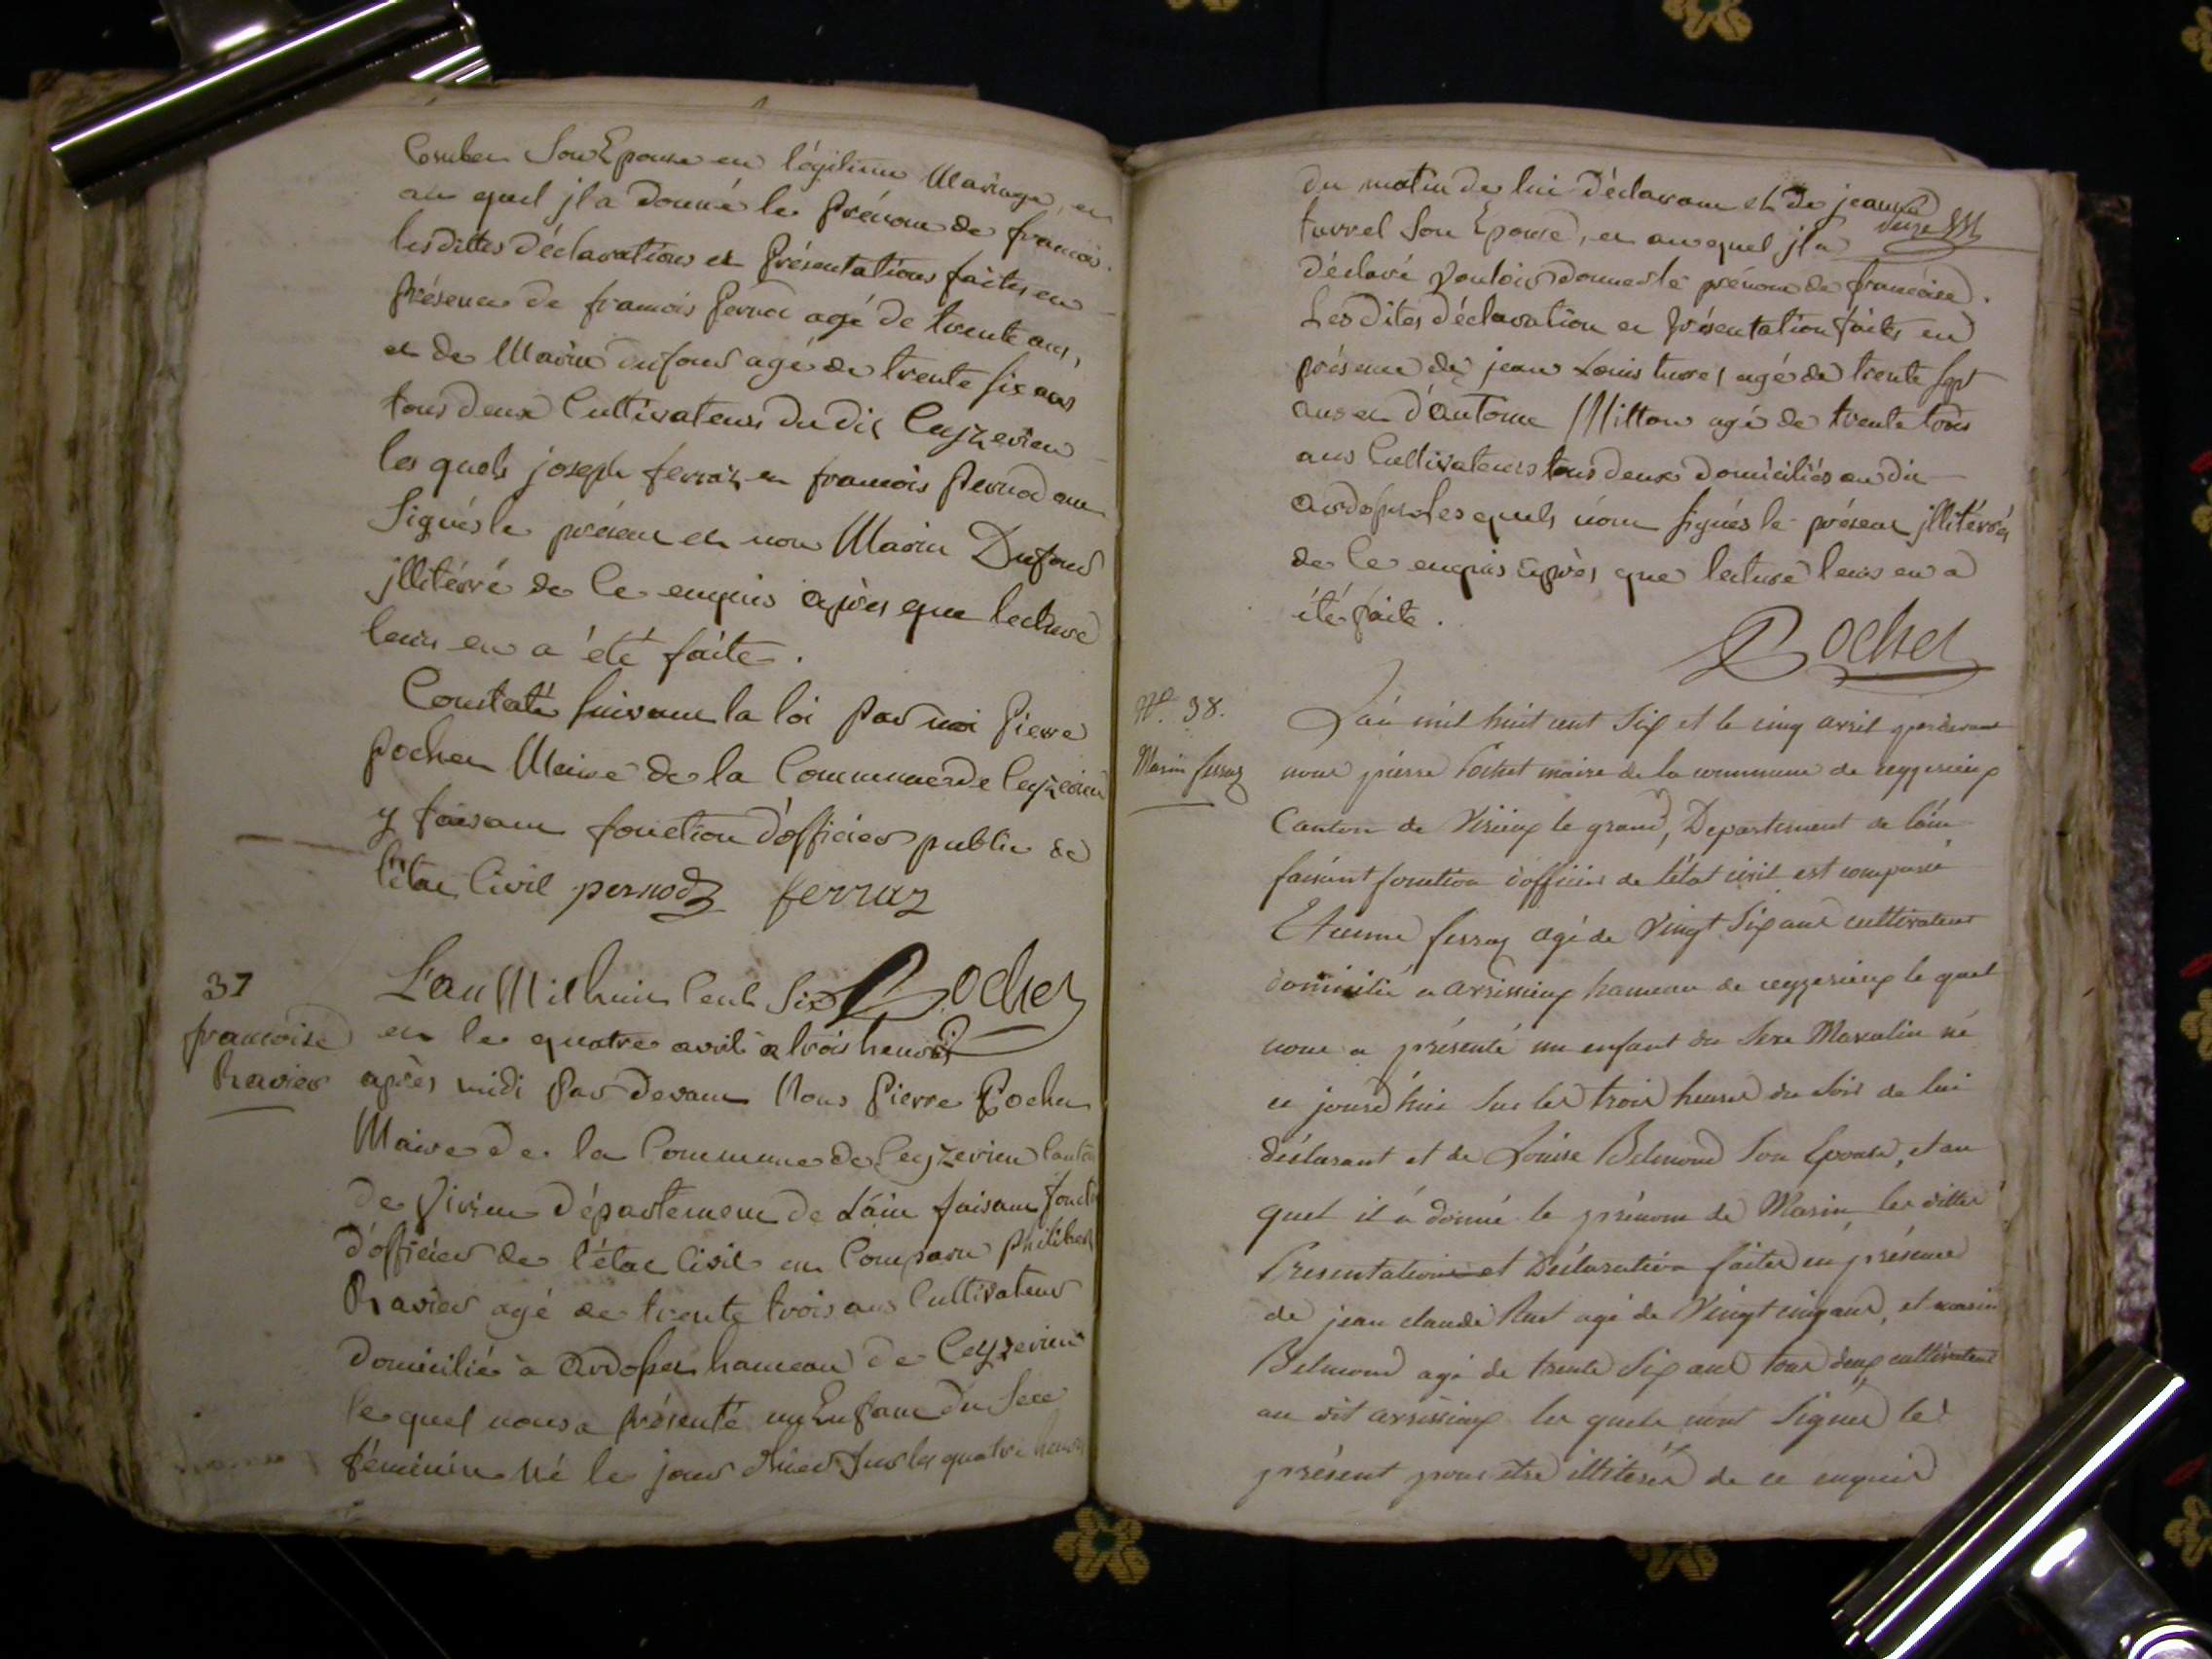 Son Epouse en légitime Mariage, et
au quel jl a donné le prénom de francois.
lesdittes déclarations et Présentations faites en
Présence de francois Pernod agé de trente ans,
et de Marin Dufour agé de trente six ans
tous deux Cultivateurs du dit Ceyzerieu
les quels joseph ferraz et francois Pernod ont
Signés le présent et non Marin Dufour
jllitérré de Ce enquis après que lecture
leurs en a été faite.
Constaté suivant la loi par moi Pierre
Pochet Maire de la Commune de Ceyzerieu
y faisant fonction d'officier public de
l'état Civil pernod ferraz
Pochet
37
francoise
Ravier
L'an Mil huit Cent Six
et le quatre avril a trois heures
après midi Par devant Nous Pierre Pochet
Maire de la Commune de Ceyzerieu Canton
de Virieu département de Láin faisant fonct
d'officier de l'état Civil est Comparu philibert
Ravier agé de trente trois ans Cultivateur
domicilié à Ardosset hameau de Ceyzerieu
le quel nous a présenté un Enfant du Sexe
féminin Né le jour d'hier Sur les quatre heures
du matin de lui déclarant et de jeanne
turrel Son Epouse, et au quel jl a
déclaré Vouloir donner le prénom de francoise.
Les dites déclaration et Présentation faites en
présence de jean Louis turrel agé de trente Sept
ans et d'Antoine Mitton agé de trente trois
ans Cultivateurs tous deux domiciliés au dit
Ardosset les quels n'ont signés le présent jllitérrés
de Ce enquis après que lecture leurs en a
été faite.
Pochet
N.º 38.
Marin ferraz
L'an mil huit cent Six et le cinq avril pardevant
nous pierre Pochet maire de la commune de ceyzerieux
Canton de Virieux le grand, Departement de láin
faisant fonction d'officier de l'état civil est comparu
Etienne ferraz agé de Vingt Six ans cultivateur
domicilié a avrissieux hameau de ceyzerieux le quel
nous a présenté un enfant du Sexe Masculin né
ce jourd'hui Sur les trois heures du Soir de lui
déclarant et de Louise Belmond Son Epouse, et au
quel il a donné le prénom de Marin, les dittes
Presentation et Déclaration faites en présence
de jean claude Ruet agé de Vingt cinq ans, et marin
Belmond agé de trente Six ans tous deux cultivateurs
au dit avrissieux les quels n'ont Signés le
présent pour etre illiterés de ce enquis